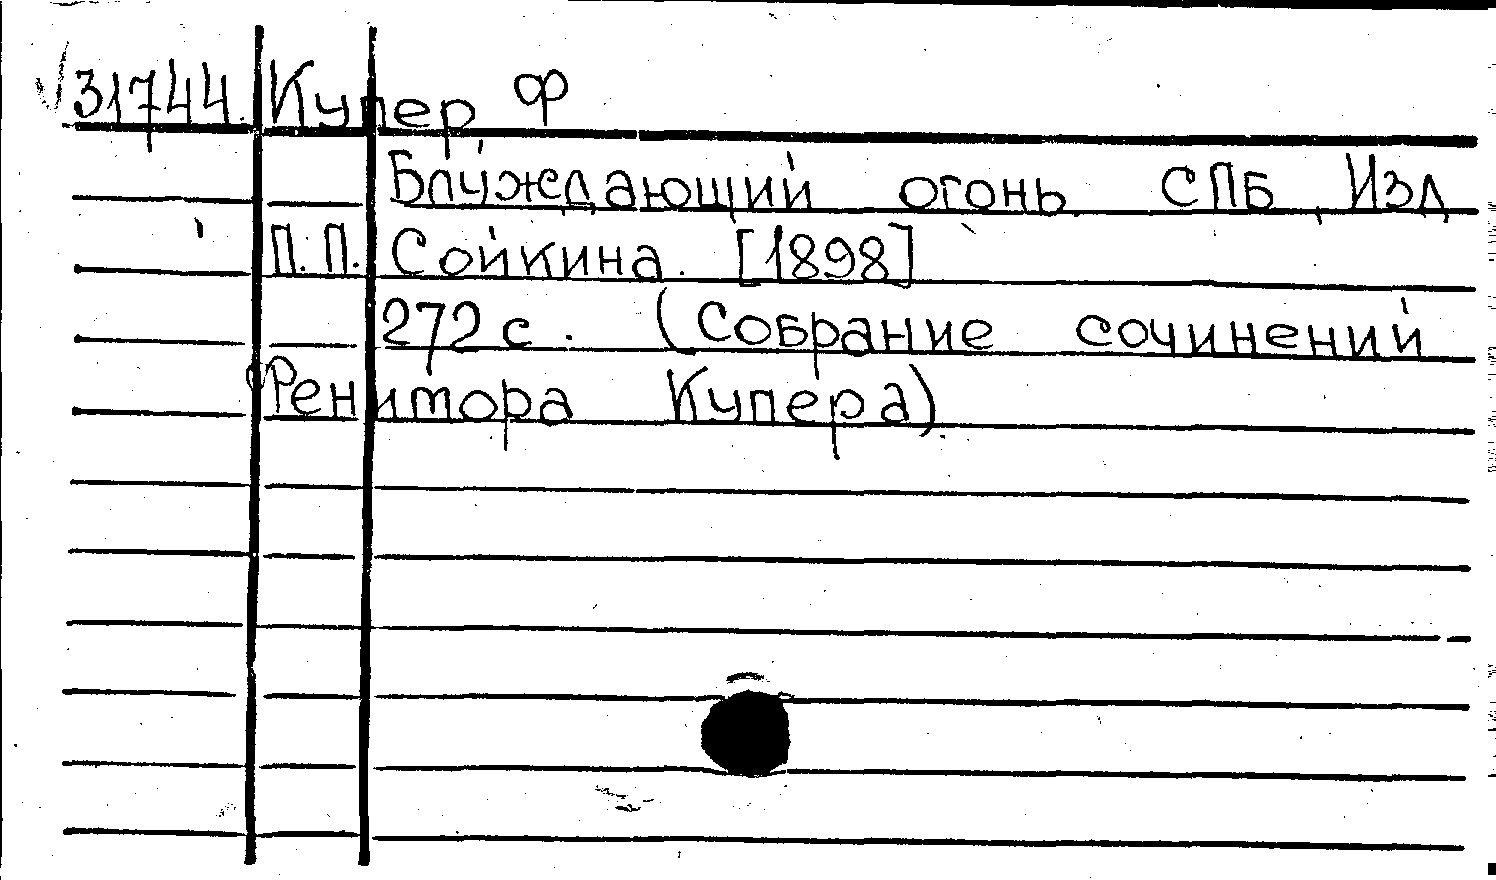 √31744. Купер Ф
Блуждающий огонь СПБ, Изд
П.П. Сойкина. [1898]
272 с. (Собрание сочинений
Ренитора Купера).